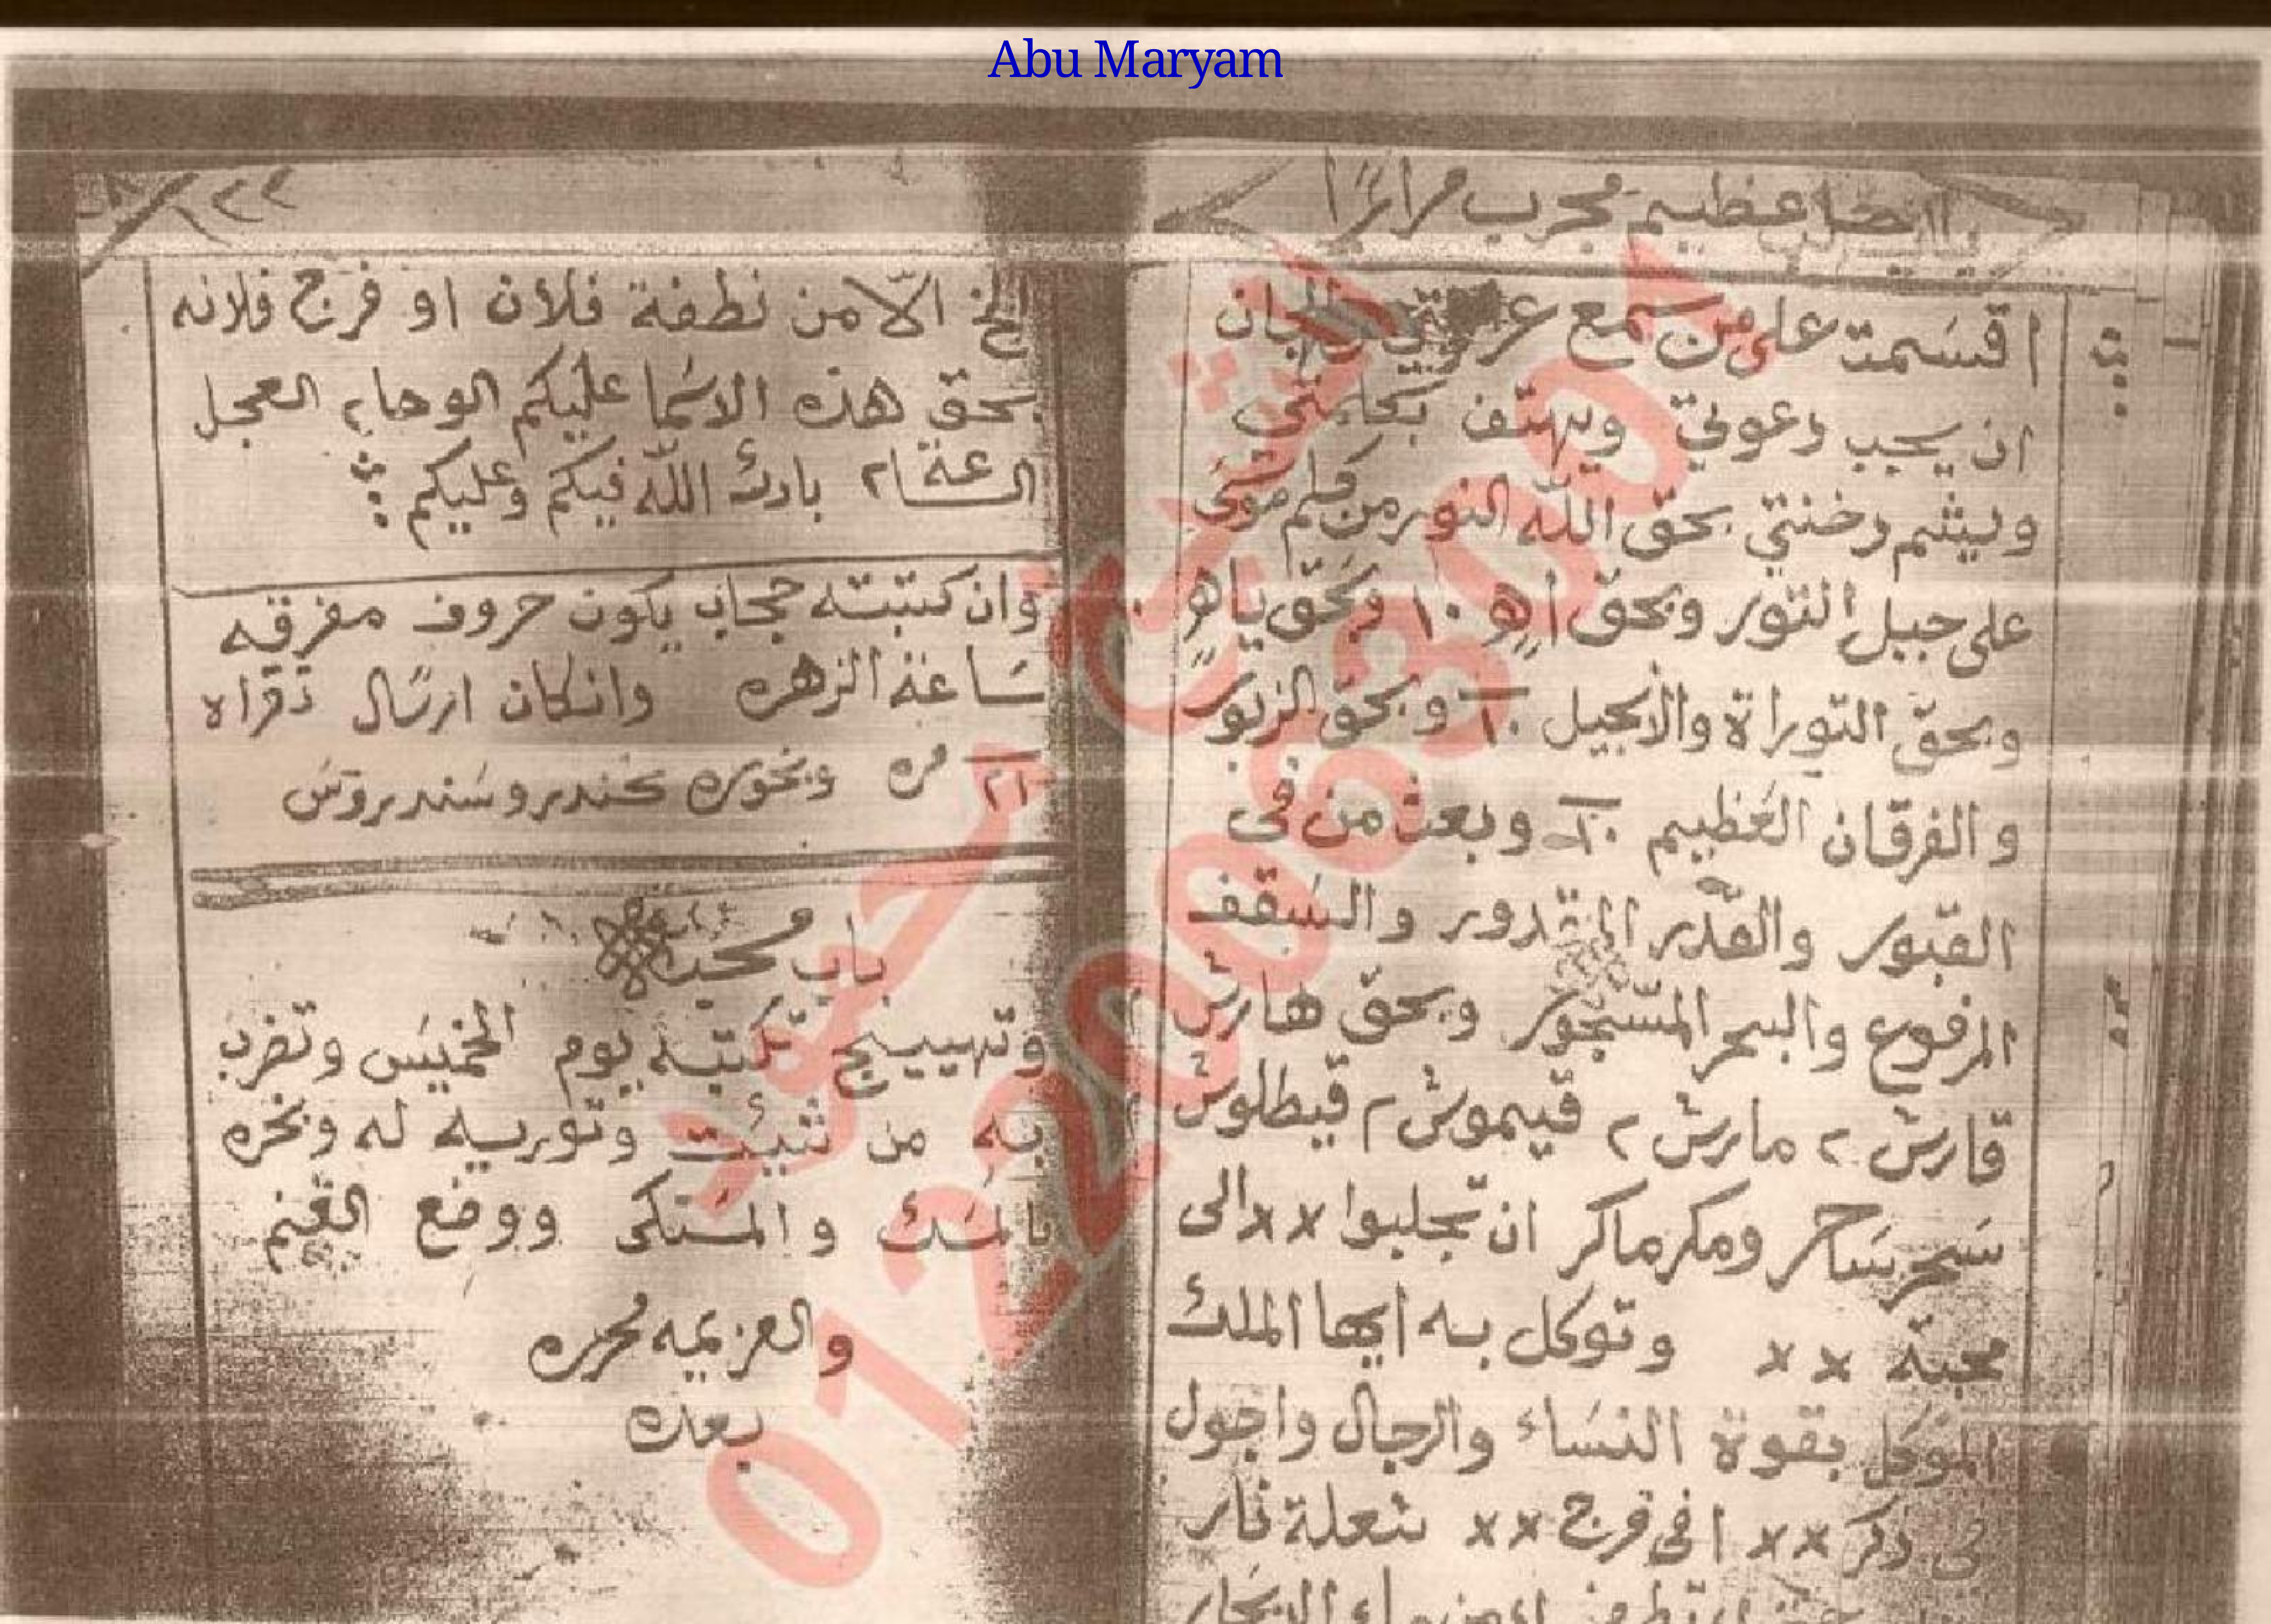 Abu Maryam
عظيم مجرب مرارًا
اقسمت على من سمع من الجان
ان يجيب دعوتي ويهتف بكلمتي
ويشم دخنتي بحق الله النور من كلم موسى
على جبل النور وبحق اهٍ ١٠ وبحق ياهٍ ١٠
وبحق التوراة والانجيل ١٠ وبحق الزبور
والفرقان العظيم ١٠ وبعث من فى
القبور والقدر المقدور والسقف
المرفوع والبحر المسجور وبحق هارش
قارش ٢ مارش ٢ قيموش ٢ قيطلوش
سحر ساحر ومكر ماكر ان تجلبوا ×× الى
محبة ×× وتوكل به ايها الملك
الموكل بقوة النساء والرجال واجول
في ذكر ×× افي فرج ×× شعلة نار
ماء البحار
٢٢
الخ الّا من نطفة فلان او فرج فلانه
بحق هذه الاسما عليكم الوحا ٢ العجل
الساعة ٢ بارك الله فيكم وعليكم
وان كتبته حجاب يكون حروف مفرقه
ساعة الزهره وانكان ارسال تقراه
٢١ مره وبخوره كندر وسندروس
باب محبة
وتهييج تكتبه يوم الخميس وتضرب
به من شيئت وتوريه له وبخره
بالمسك والمستكى ووضع الغنم
والعزيمه محرره
بعده
الشيخ محمود
01220063001